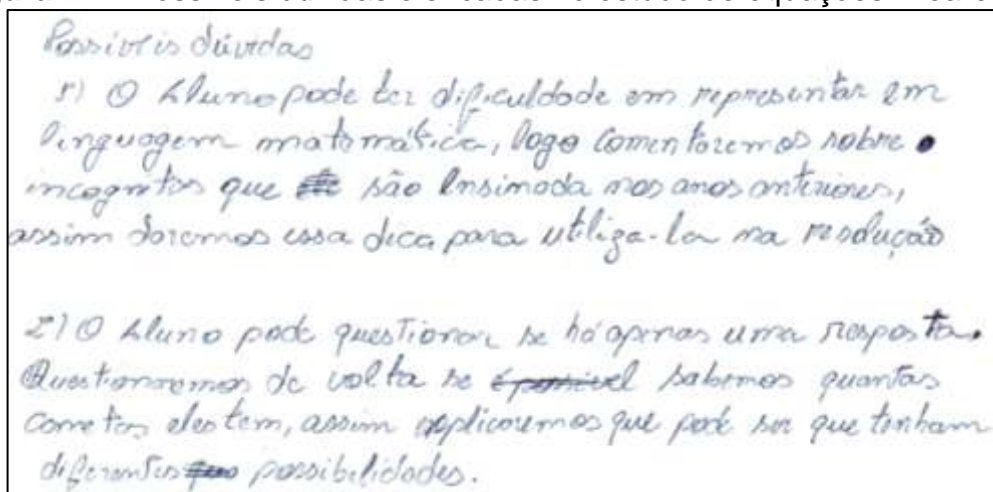 Possiveis dúvidas
1) O Aluno pode ter dificuldade em representar em
linguagem matemática, logo comentaremos sobre
incognitas que são ensinada nos anos anteriores,
assim daremos essa dica para utiliza-la na resolução
2) O Aluno pode questionar se há apenas uma resposta.
Questionaremos de volta se é possivel sabemos quantas
canetas eles tem, assim explicaremos que pode ser que tenham
diferentes possibilidades.